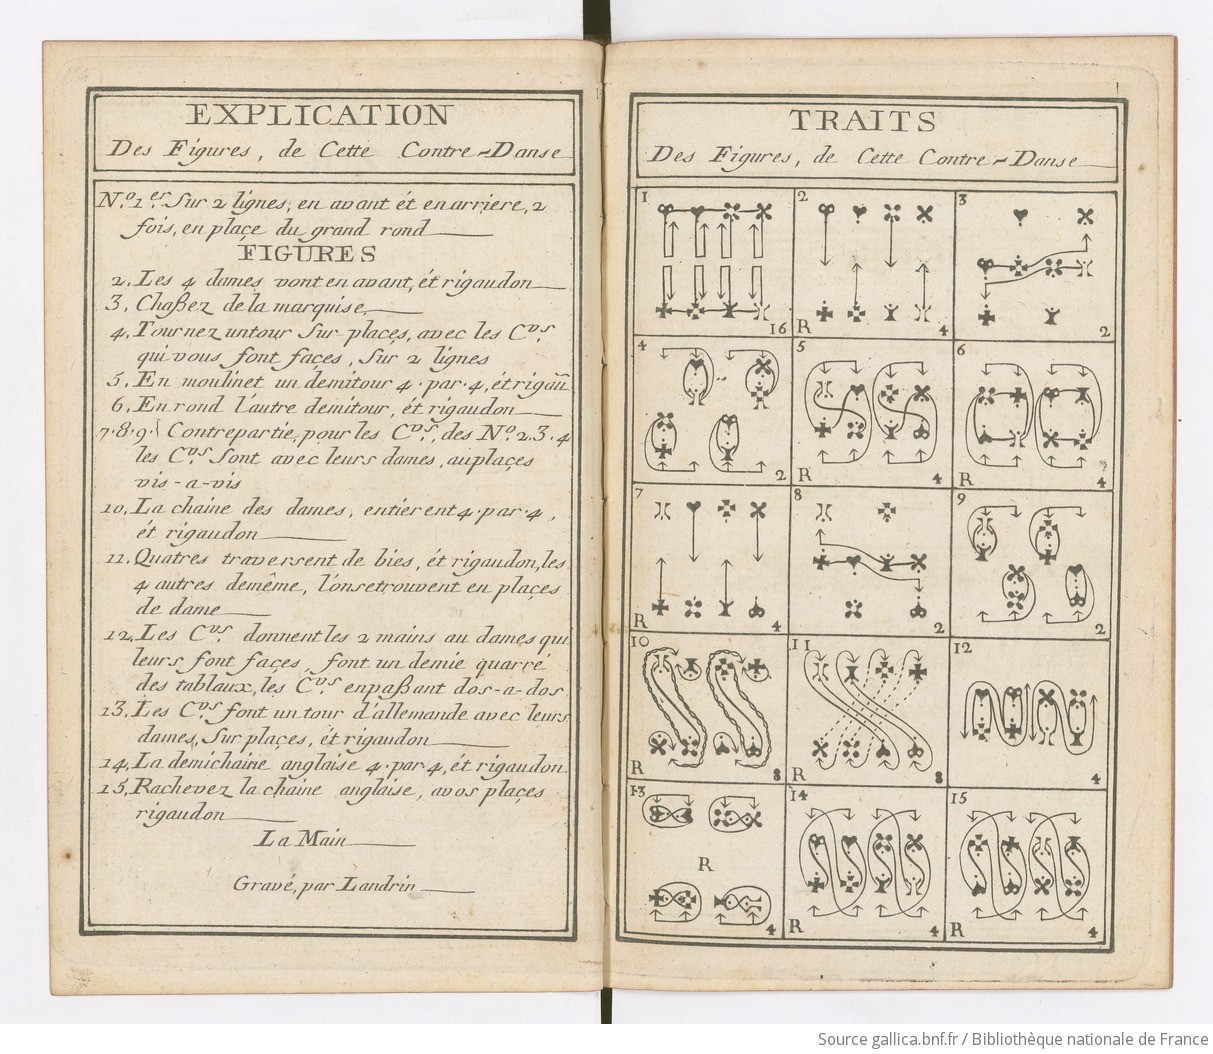 EXPLICATION
Des Figures, de Cette Contre-Danse
N.º 1.er Sur 2 lignes, en avant ét en arriere, 2
fois, en plaçe du grand rond
FIGURES
2. Les 4 dames vont en avant, ét rigaudon
3. Chaßez de la marquise,
4. Tournez un tour Sur plaçes, avec les C.vs
qui vous font façes, Sur 2 lignes
5. En moulinet un demitour 4 par 4, ét rigōu
6. En rond l'autre demitour, ét rigaudon
7.8.9. Contrepartie, pour les C.vs, des N.º 2.3.4
les C.vs Sont avec leurs dames, au plaçes
vis-a-vis
10. La chaine des dames, entiérent 4 par 4,
ét rigaudon
11. Quatres traversent de bies, ét rigaudon, les
4 autres demême, l'on se trouvent en plaçes
de dame
12. Les C.vs donnent les 2 mains au dames qui
leurs font façes, font un demie quarré
des tablaux, les C.vs en paßant dos-a-dos
13. Les C.vs font un tour d'allemande avec leurs
dames, Sur plaçes, ét rigaudon
14. La demichaine anglaise 4 par 4, ét rigaudon
15. Rachevez la chaine anglaise, a vos plaçes
rigaudon
La Main
Gravé, par Landrin
TRAITS
Des Figures, de Cette Contre-Danse
1
16
2
R
4
3
2
4
2
5
R
4
6
R
4
7
R
4
8
2
9
2
10
R
8
11
R
8
12
4
13
R
4
14
R
4
15
R
4
Source gallica.bnf.fr / Bibliothèque nationale de France